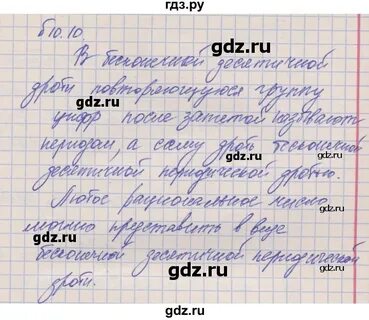 гдз.ру
б10.10.
В бесконечной десятичной
дроби повторяющуюся группу
цифр после запятой называют
периодом, а саму дробь бесконечной
десятичной периодической дробью.
Любое рациональное число
можно представить в виде
бесконечной десятичной периодической
дроби.
gdz.ru
gdz.ru
gdz.ru
gdz.ru
gdz.ru
gdz.ru
gdz.ru
gdz.ru